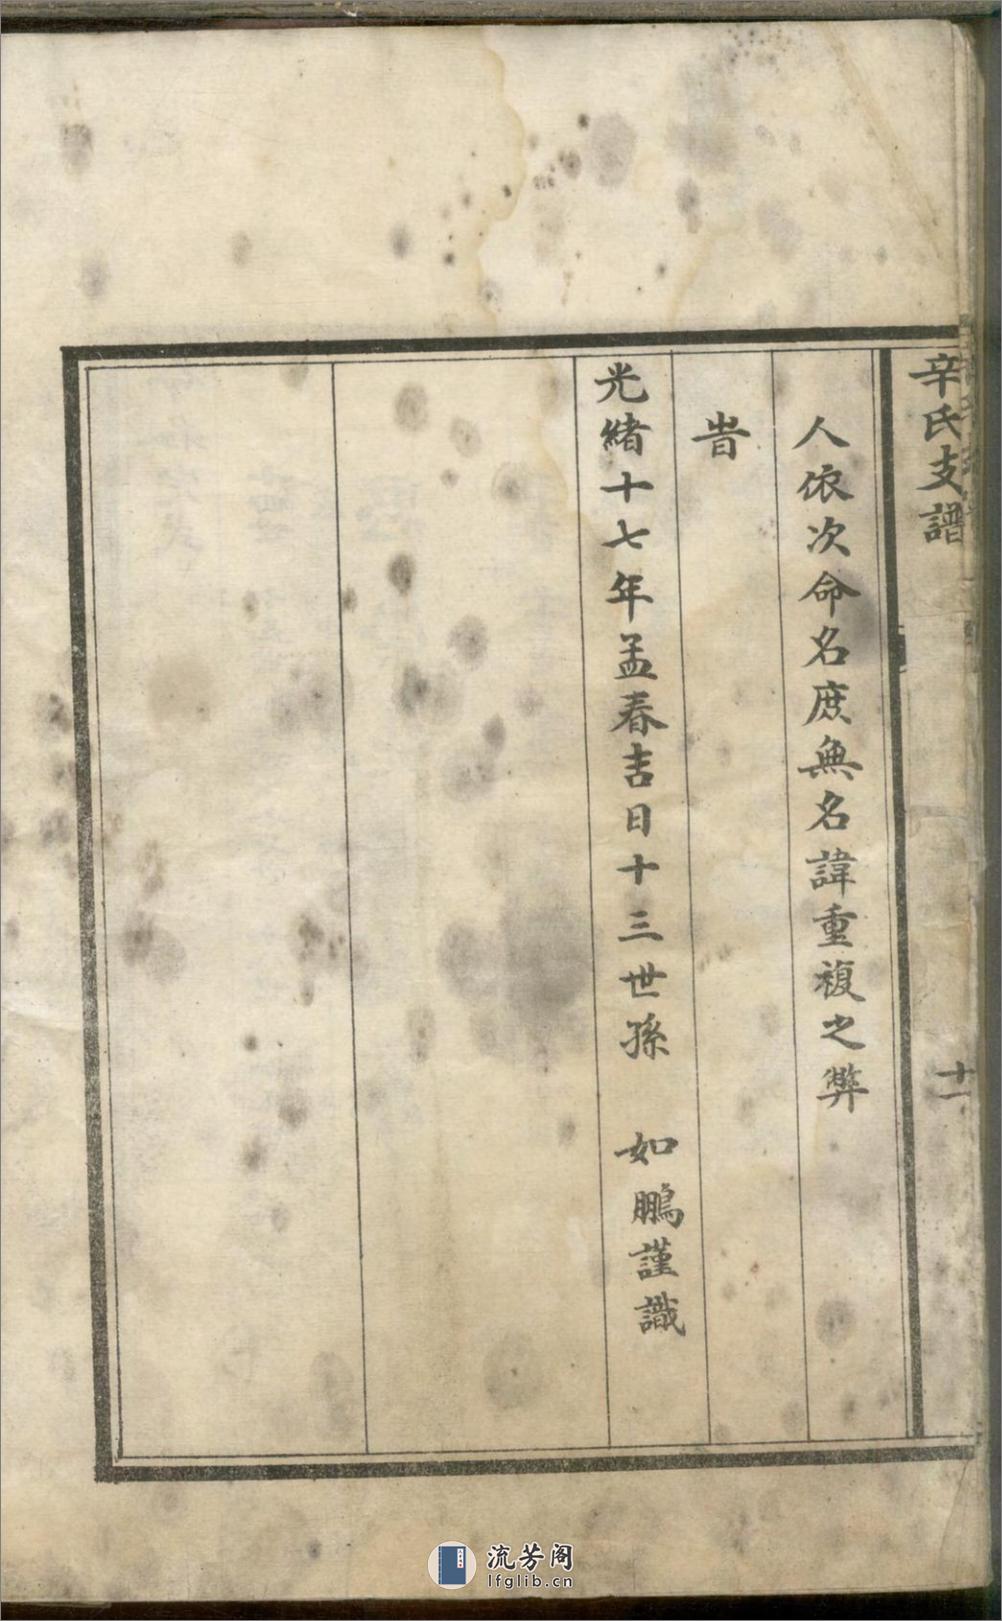 辛氏支譜
十一
人依次命名庶無名諱重複之弊
旹
光緒十七年孟春吉日十三世孫 如鵬謹識
流芳阁
lfglib.cn